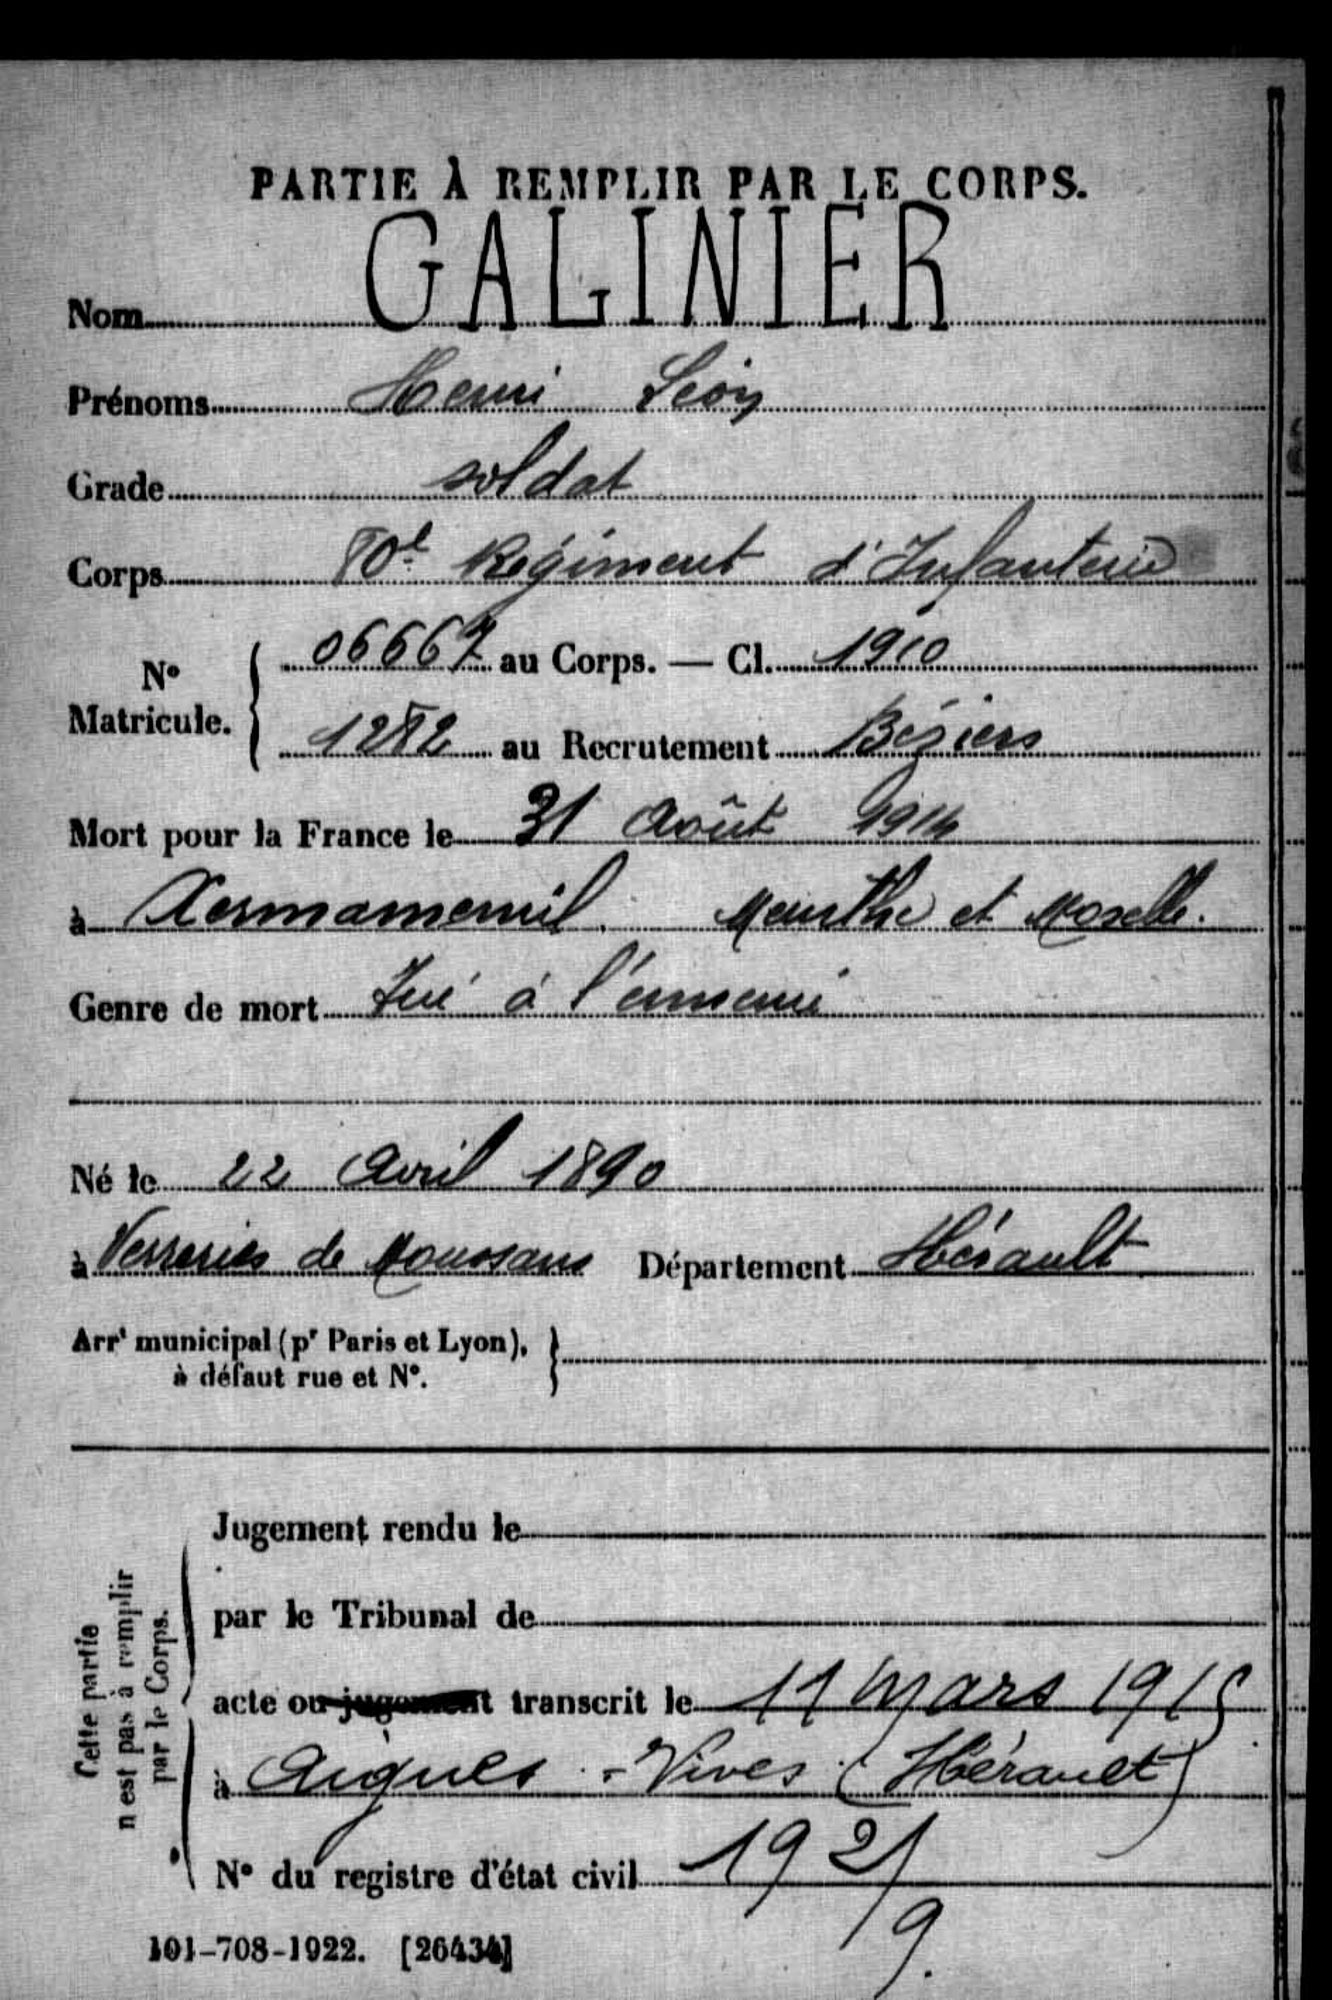 PARTIE À REMPLIR PAR LE CORPS.
Nom GALINIER
Prénoms Henri Léon
Grade soldat
Corps 80e Régiment d'Infanterie
N° Matricule. { 06667 au Corps. — Cl. 1910
1282 au Recrutement Béziers
Mort pour la France le 31 Août 1914
à Xermamenil Meurthe et Moselle.
Genre de mort Tué à l'ennemi
Né le 22 Avril 1890
à Verreries de Moussans Département Hérault
Arrt municipal (pr Paris et Lyon), }
à défaut rue et N°.
Cette partie
n'est pas à remplir
par le Corps.
Jugement rendu le
par le Tribunal de
acte ou jugement transcrit le 11 Mars 1915
à Aigues-Vives (Hérault)
N° du registre d'état civil 1921/9.
101-708-1922. [26434]